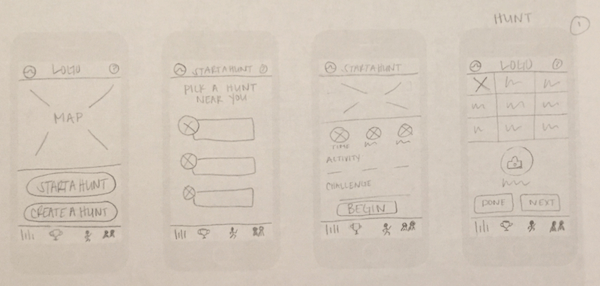 HUNT
1
LOGO
MAP
START A HUNT
CREATE A HUNT
START A HUNT
PICK A HUNT
NEAR YOU
START A HUNT
TIME
ACTIVITY
CHALLENGE
BEGIN
LOGO
DONE
NEXT